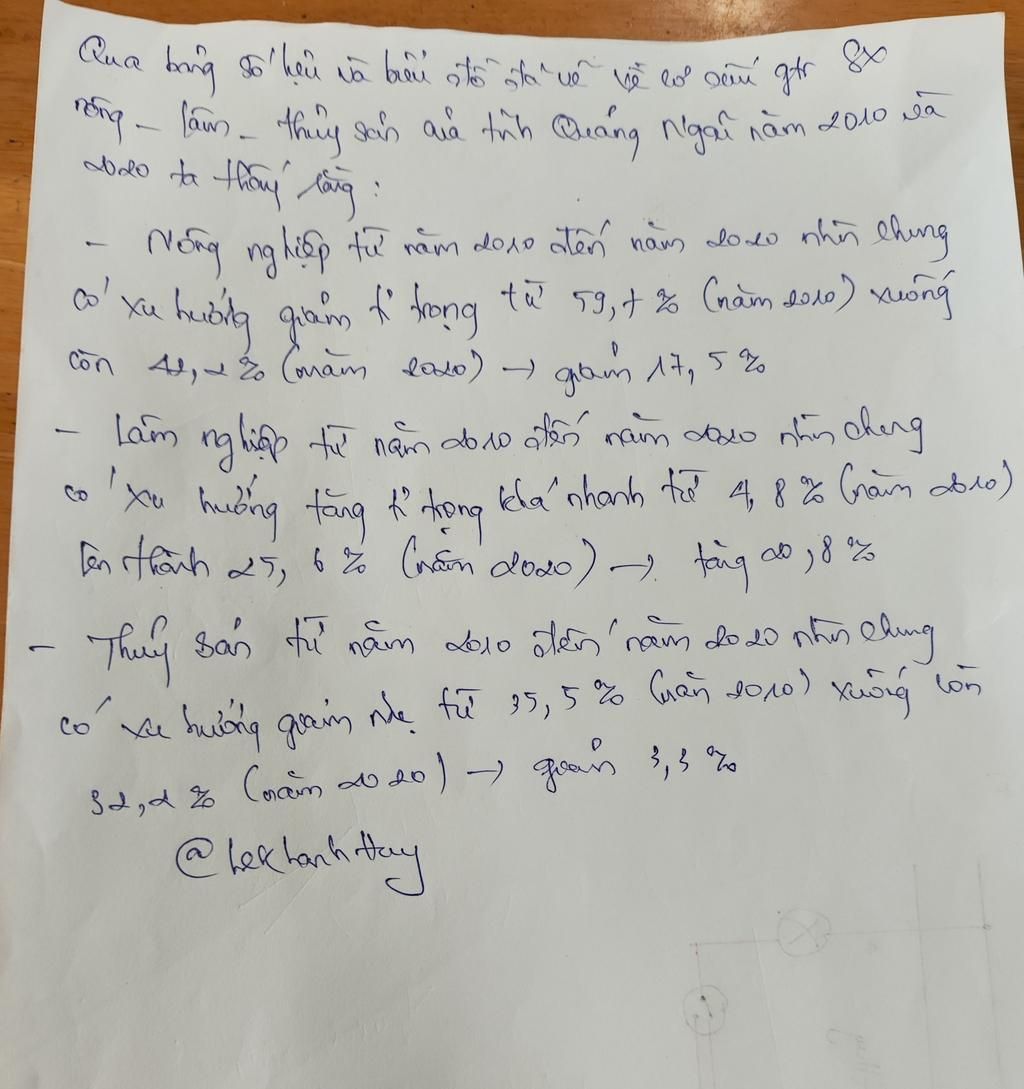 Qua bảng số liệu và biểu đồ đã vẽ về cơ cấu gtr sx
nông - lâm - thủy sản của tỉnh Quảng Ngãi năm 2010 và
2020 ta thấy rằng :
- Nông nghiệp từ năm 2010 đến năm 2020 nhìn chung
có xu hướng giảm tỉ trọng từ 59,7 % (năm 2010) xuống
còn 42,2 % (năm 2020) → giảm 17,5 %
- Lâm nghiệp từ năm 2010 đến năm 2020 nhìn chung
có xu hướng tăng tỉ trọng khá nhanh từ 4,8 % (năm 2010)
lên thành 25,6 % (năm 2020) → tăng 20,8 %
- Thủy sản từ năm 2010 đến năm 2020 nhìn chung
có xu hướng giảm nhẹ từ 35,5 % (năm 2010) xuống còn
32,2 % (năm 2020) → giảm 3,3 %
@LeKhanhHuy